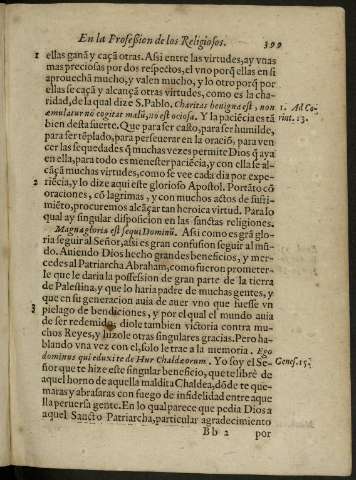 En la Profeßion de los Religiosos. 399
1 ellas ganã y caçã otras. Assi entre las virtudes, ay vnas
mas preciosas por dos respectos, el vno porq̃ ellas en si
aprouechã mucho, y valen mucho, y lo otro porq̃ por
ellas se caçã y alcançã otras virtudes, como es la cha-
ridad, de la qual dize S. Pablo, Charitas benigna est, non
æmulatur nõ cogitat malũ, nõ est ociosa. Y la paciẽcia es tã
bien desta suerte. Que para ser casto, para ser humilde,
para ser tẽplado, para perseuerar en la oraciõ, para ven
cer las sequedades q̃ muchas vezes permite Dios q̃ aya
en ella, para todo es menester paciẽcia, y con ella se al-
cãçã muchas virtudes, como se vee cada dia por expe-
2 riẽcia, y lo dize aqui este glorioso Apostol. Portãto cõ
oraciones, cõ lagrimas, y con muchos actos de sufri-
miẽto, procuremos alcãçar tan heroica virtud. Para lo
qual ay singular disposicion en las sanctas religiones.
Magna gloria est sequi Dominũ. Assi como es grã glo-
ria seguir al Señor, assi es gran confusion seguir al mũ-
do. Auiendo Dios hecho grandes beneficios, y mer-
cedes al Patriarcha Abraham, como fueron prometer-
le que le daria la possession de gran parte de la tierra
de Palestina, y que lo haria padre de muchas gentes, y
que en su generacion auia de auer vno que fuesse vn
3 pielago de bendiciones, y por el qual el mundo auia
de ser redemido, diole tambien victoria contra mu-
chos Reyes, y hizole otras singulares gracias. Pero ha-
blando vna vez con el, solo le trae a la memoria. Ego
dominus qui eduxi te de Hur Chaldæorum. Yo soy el Se-
ñor que te hize este singular beneficio, que te librè de
aquel horno de aquella maldita Chaldea, dõde te que-
maras y abrasaras con fuego de infidelidad entre aque
lla peruersa gente. En lo qual parece que pedia Dios a
aquel Sancto Patriarcha, particular agradecimiento
Bb 2 por
1. Ad Co
rint. 13.
Genes. 15.